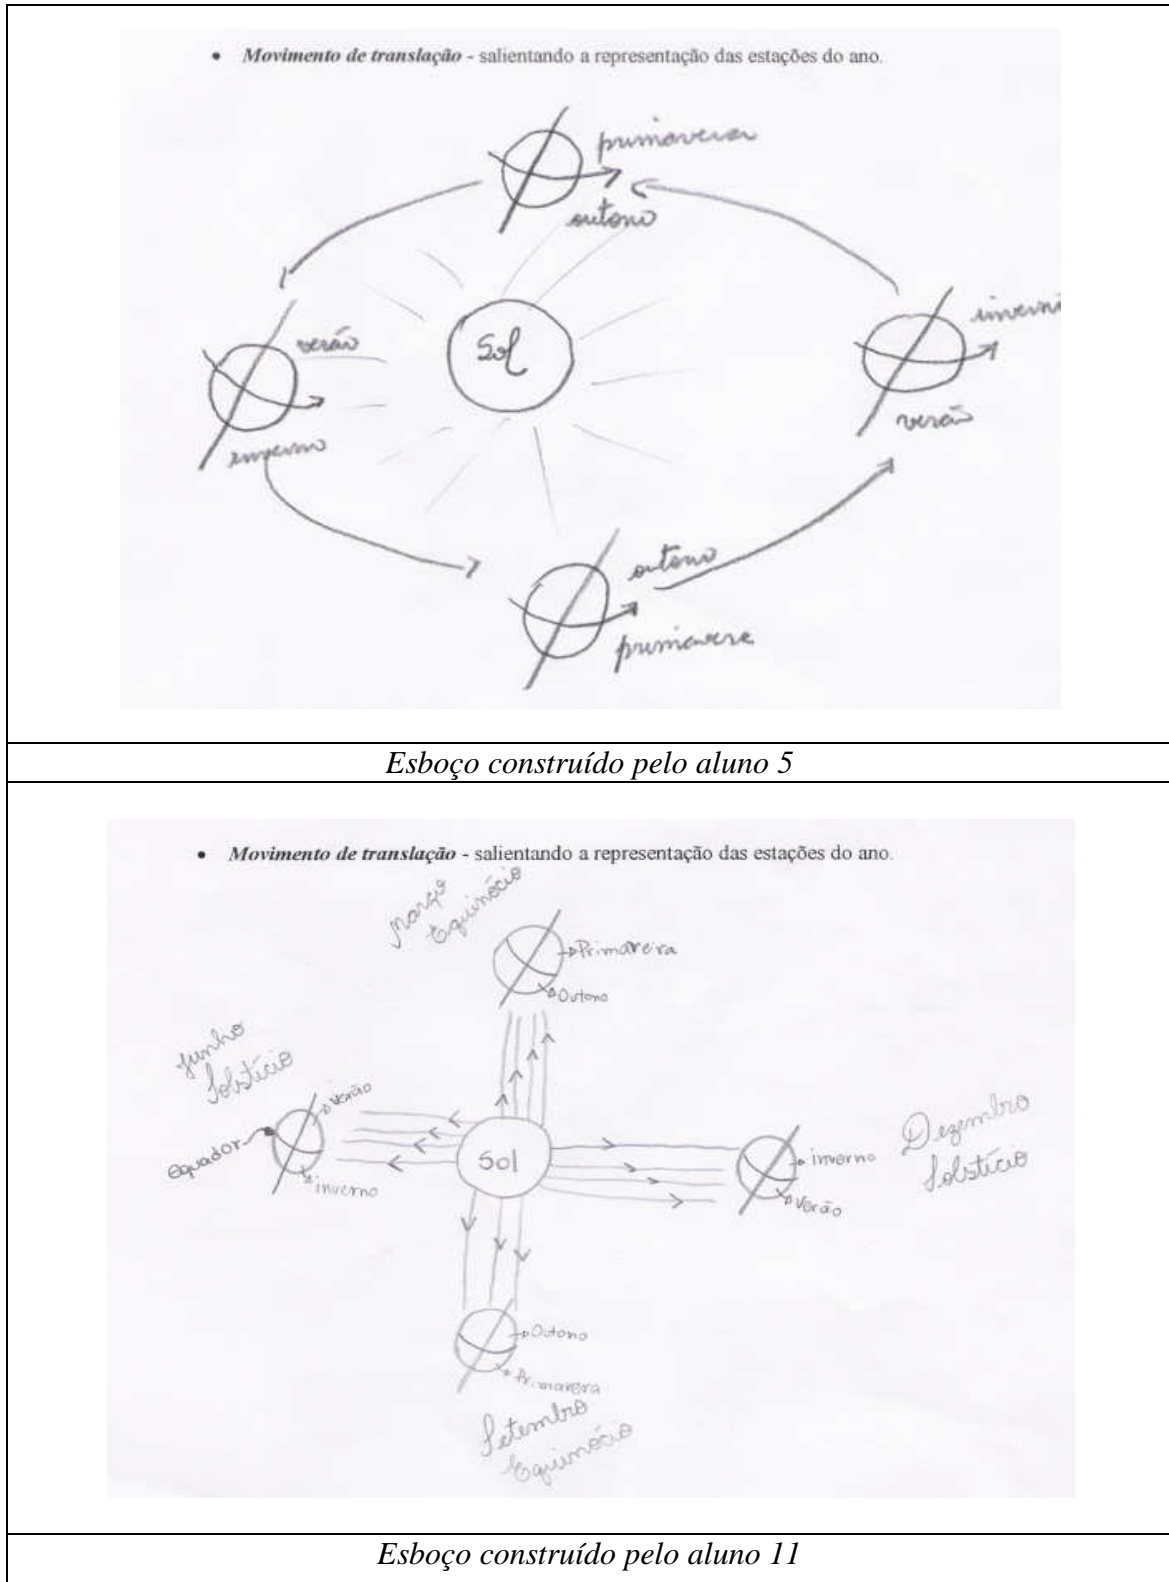 • Movimento de translação - salientando a representação das estações do ano.
primavera
outono
verão
Sol
inverno
inverno
verão
outono
primavera
Esboço construído pelo aluno 5
• Movimento de translação - salientando a representação das estações do ano.
Março
Equinócio
Primavera
Outono
Junho
Solstício
Verão
Equador
inverno
Sol
inverno
Verão
Dezembro
Solstício
Outono
Primavera
Setembro
Equinócio
Esboço construído pelo aluno 11